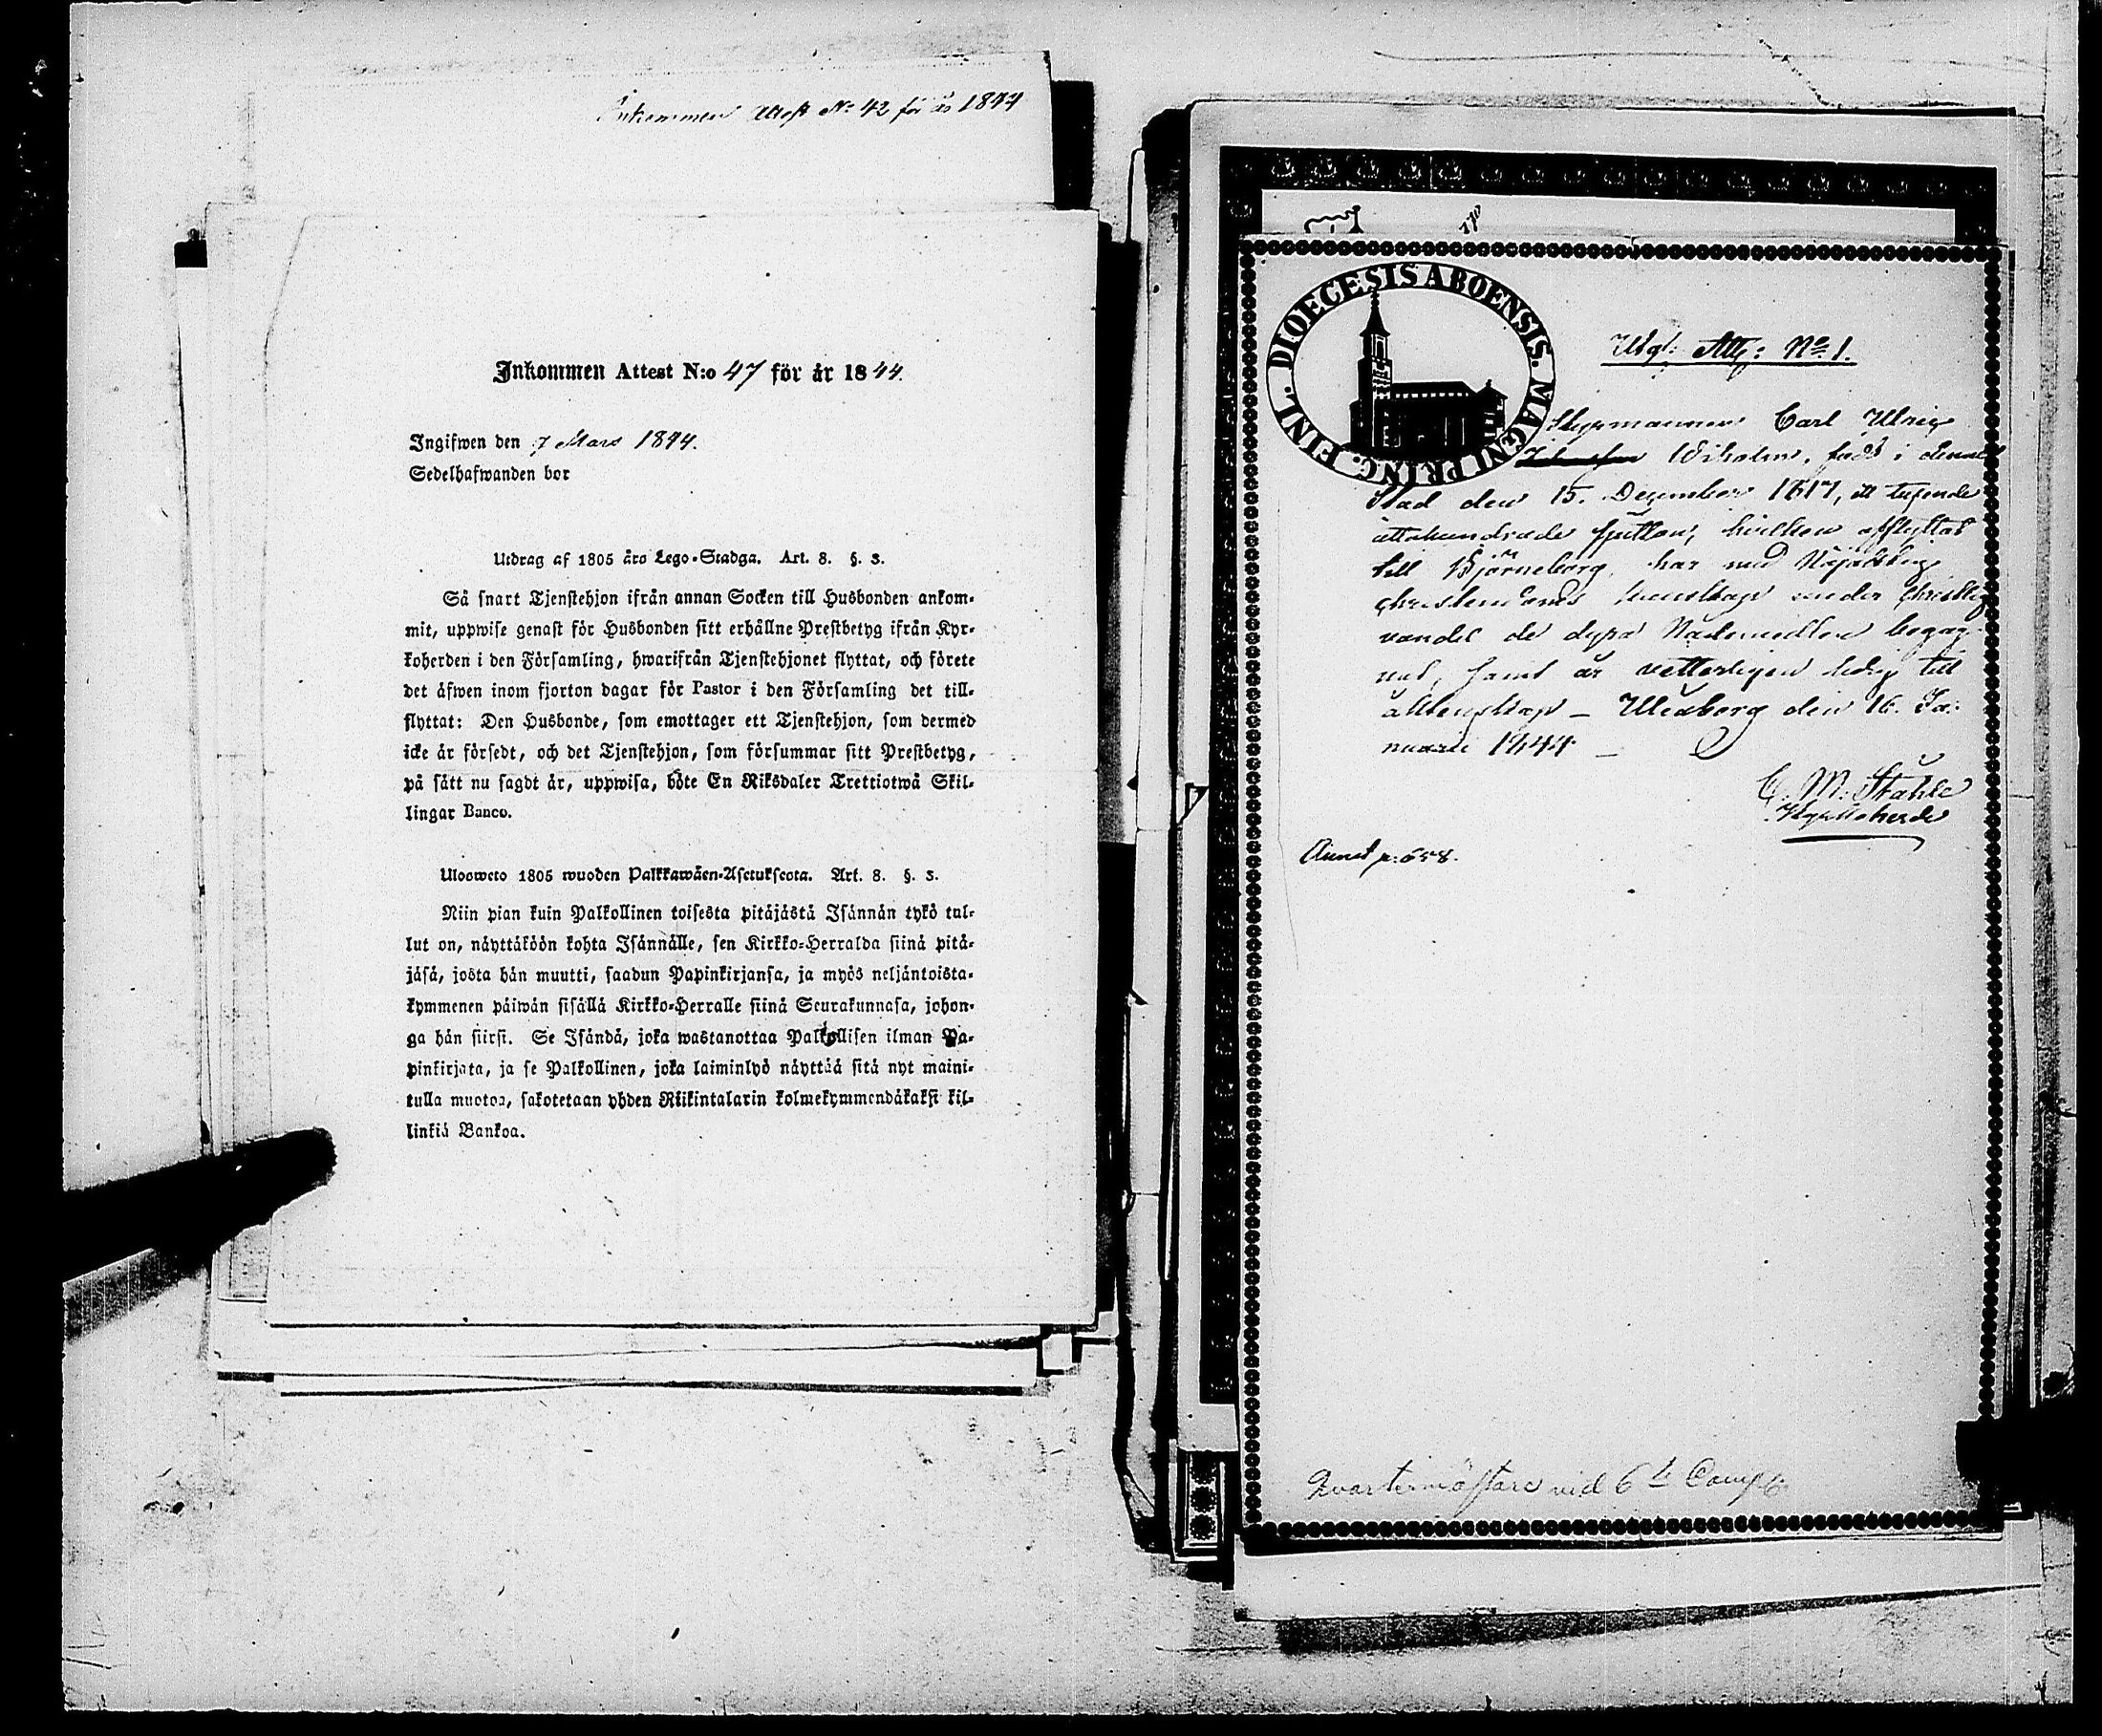 Inkommen Attest No 42 för år 1844
Inkommen Attest N:o 47 för år 1844.
Ingifwen den 7 Mars 1844.
Sedelhafwanden bor
Utdrag af 1805 års Lego-Stadga. Art. 8. §. 3.
Så snart Tjenstehjon ifrån annan Socken till Husbonden ankom-
mit, uppwise genast för Husbonden sitt erhållne Prestbetyg ifrån Kyr-
koherden i den Församling, hwarifrån Tjenstehjonet flyttat, och förete
det äfwen inom fjorton dagar för Pastor i den Församling det till-
flyttat: Den Husbonde, som emottager ett Tjenstehjon, som dermed
icke är försedt, och det Tjenstehjon, som försummar sitt Prestbetyg,
på sätt nu sagdt är, uppwisa, böte En Riksdaler Trettiotwå Skil-
lingar Banco.
Ulosweto 1805 wuoden Palkkawäen-Asetuksesta. Art. 8. §. 3.
Niin pian kuin Palkollinen toisesta pitäjästä Isännän tykö tul-
lut on, näyttäköön kohta Isännälle, sen Kirkko-Herralda siinä pitä-
jäsä, josta hän muutti, saadun Papinkirjansa, ja myös neljäntoista-
kymmenen päiwän sisällä Kirkko-Herralle siinä Seurakunnasa, johon-
ga hän siirsi. Se Isändä, joka wastanottaa Palkollisen ilman Pa-
pinkirjata, ja se Palkollinen, joka laiminlyö näyttää sitä nyt maini-
tulla muotoa, sakotetaan yhden Riikintalarin kolmekymmendäkaksi kil-
linkiä Bankoa.
170
DIOECESIS ABOENSIS. MAGNI PRINC. FINL.
Utgl: Att: No 1.
Styrmannen Carl Ulric
Wikholm, född i denna
Stad den 15. December 1817, ett tusende
attahundrade sjutton, hvilken afflyttat
till Björneborg, har med Nöjaktig
christendoms kunskap under christlig
vandel de dyra Nådemedlen begag-
nat, samt är vetterligen ledig till
äktenskap – Uleåborg den 16. Ja-
nuarii 1844 –
C. M. Ståhle
Kyrkoherde
Annot p: 658.
Qvartermästare vid 6te Comp